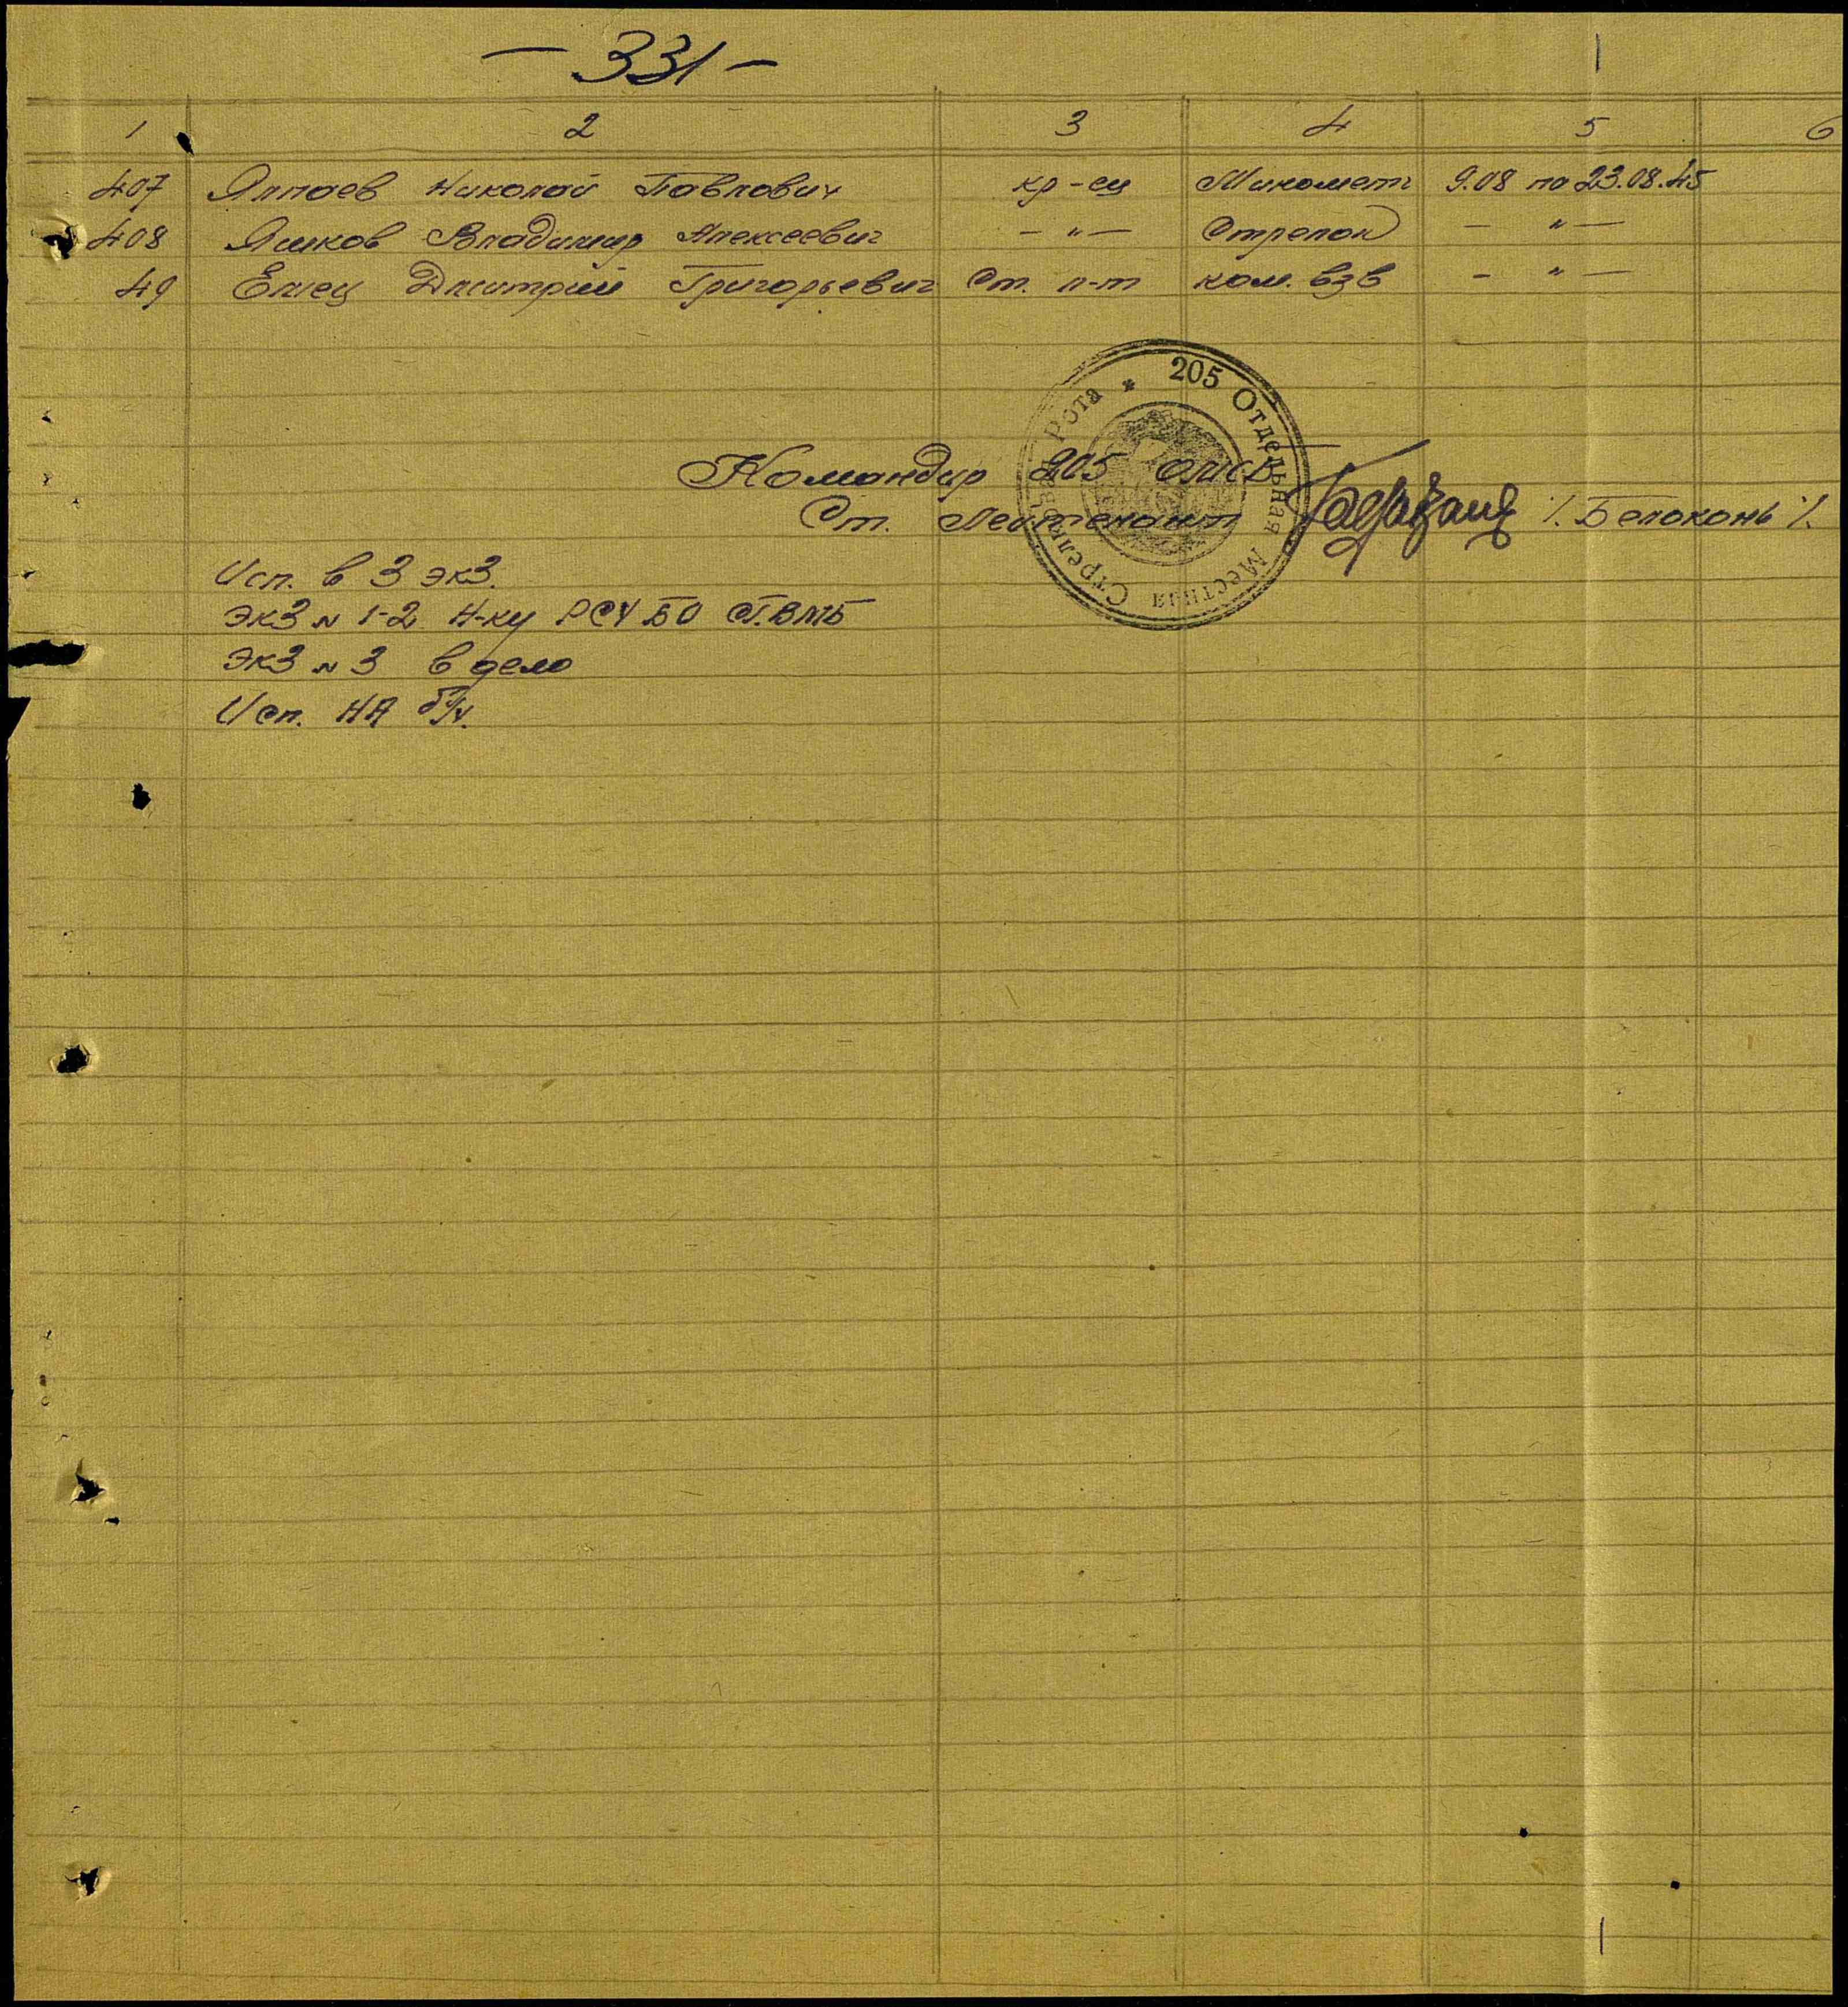 - 331 -
1 2 3 4 5 6
407 Ялпаев Николай Павлович кр-ец Миномет. 9.08 по 23.08.45
408 Яшков Владимир Алексеевич - " - Стрелок - " -
49 Елец Дмитрий Григорьевич Ст. л-т ком. взв - " -
205 Отдельная Местная Стрелковая Рота *
Командир 205 омср
Ст. Лейтенант /. Белоконь /.
Исп. в 3 экз.
экз № 1-2 Н-ку РСЧ БО СТ.ВМБ
Экз № 3 в дело
Исп. НА б/ч.